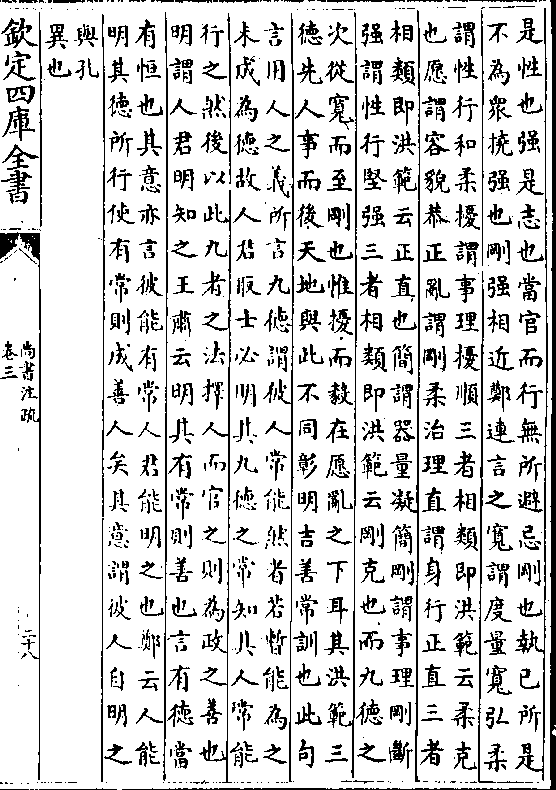 是性也强是志也當官而行無所避忌剛也執己所是
不為衆撓强也剛强相近鄭連言之寬謂度量寬弘柔
謂性行和柔擾謂事理擾順三者相類即洪範云柔克
也愿謂容貌恭正亂謂剛柔治理直謂身行正直三者
相類即洪範云正直也簡謂器量凝簡剛謂事理剛斷
强謂性行堅强三者相類即洪範云剛克也而九德之
次從寬而至剛也惟擾而毅在愿亂之下耳其洪範三
德先人事而後天地與此不同彰明吉善常訓也此句
言用人之義所言九徳謂彼人常能然者若暫能為之
未成為德故人君取士必明其九徳之常知其人常能
行之然後以此九者之法擇人而官之則為政之善也
明謂人君明知之王肅云明其有常則善也言有德當
有恒也其意亦言彼能有常人君能明之也鄭云人能
明其德所行使有常則成善人矣其意謂彼人自明之
與孔
異也
欽定四庫全書
尚書注疏
卷三
二十八